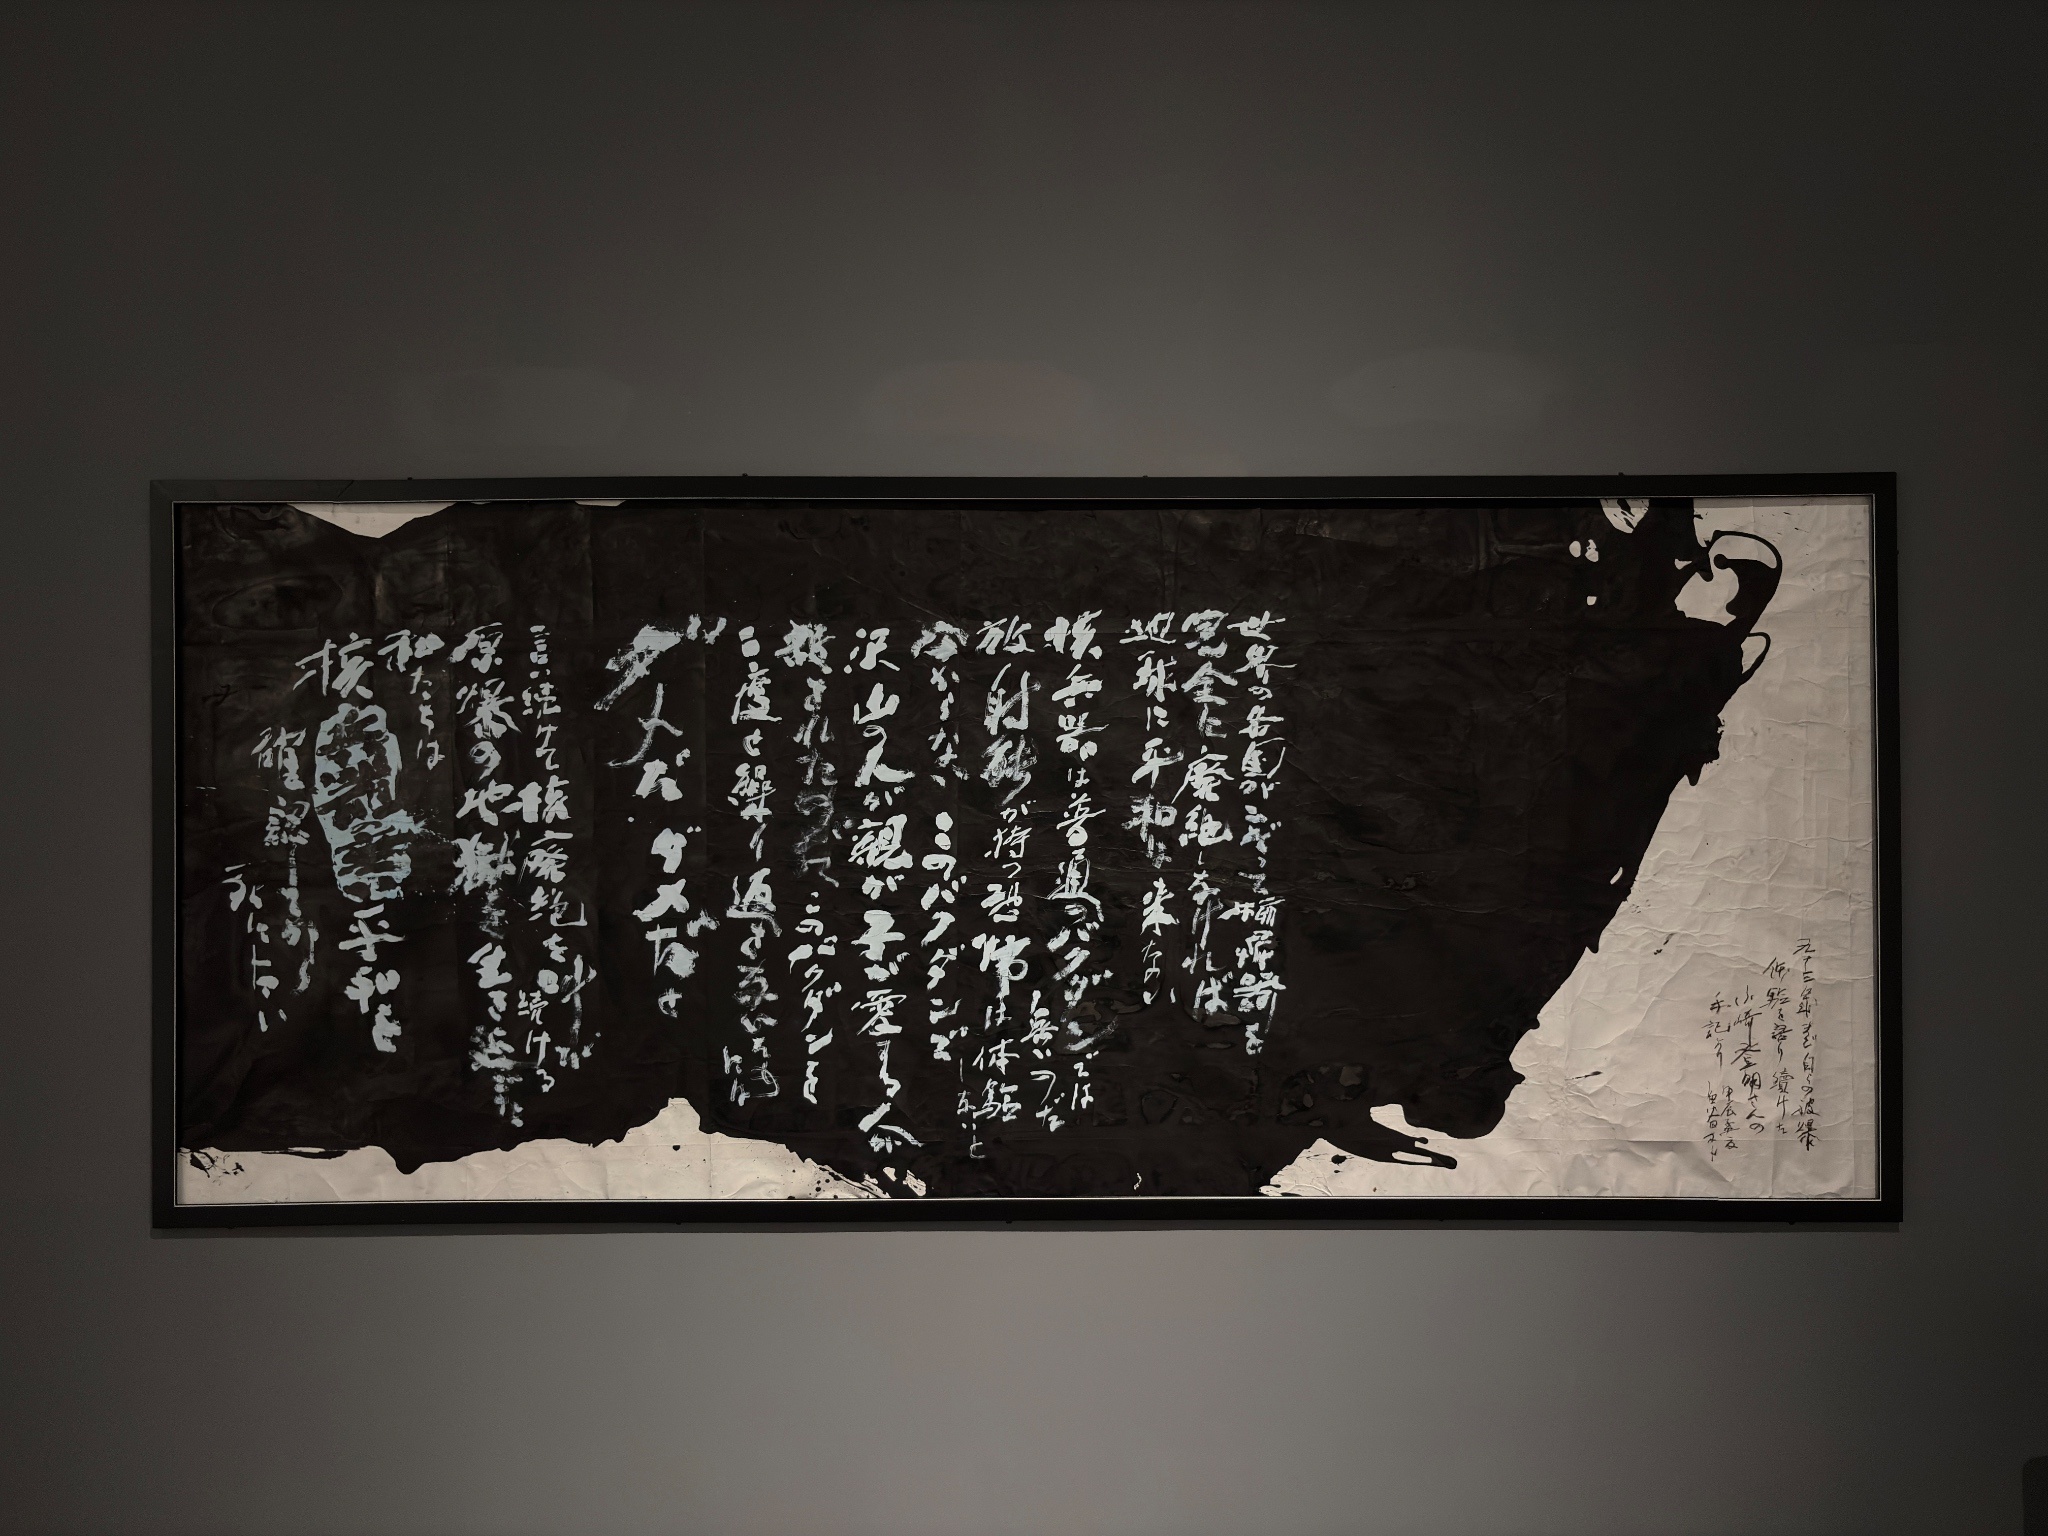 九十三歳まで自らの被爆
体験を語り続けた
小崎登明さんの
手記より
世界の各国がこぞって
完全に廃絶しなければ
地球に平和は来ない
核兵器は普通のバクダンでは
無いのだ
放射能が持つ恐怖は体験
しないと
分からない このバクダンで
沢山の人が親が子が愛する
殺された このバクダンを
二度と繰り返さないために
は
ダメだ ダメだと
言い続けて核廃絶を叫び
続ける
原爆の地獄を生き延びた
私たちは
核 平和を
確認してから
死にたい